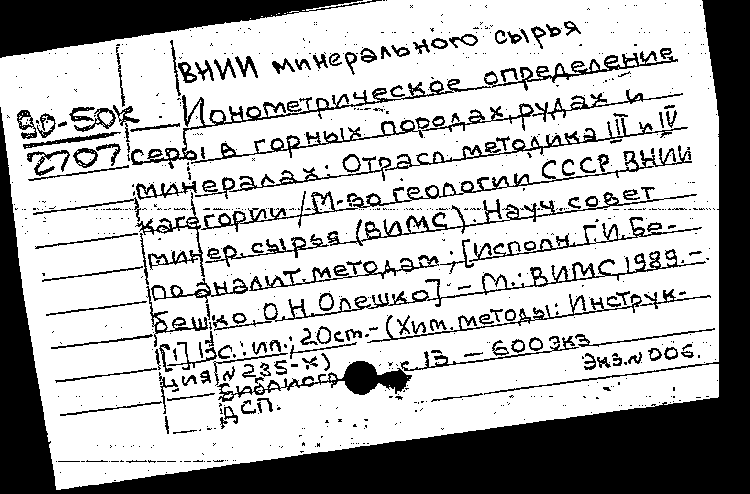 ВНИИ минерального сырья
90-50к
2707
Ионометрическое определение
серы в горных породах, рудах и
минералах: Отрасл. методика III и IV
категории / М-во геологии СССР, ВНИИ
минер. сырья (ВИМС). Науч. совет
по аналит. методам; [Исполн. Г.И. Бе-
бешко, О.Н. Олешко] - М.: ВИМС, 1989. -
[1], 13 с.: ил.; 20 см. - (Хим. методы: Инструк-
ция N 235-X)
Библиогр с 13. - 600 экз
Экз. N 006.
ДСП.